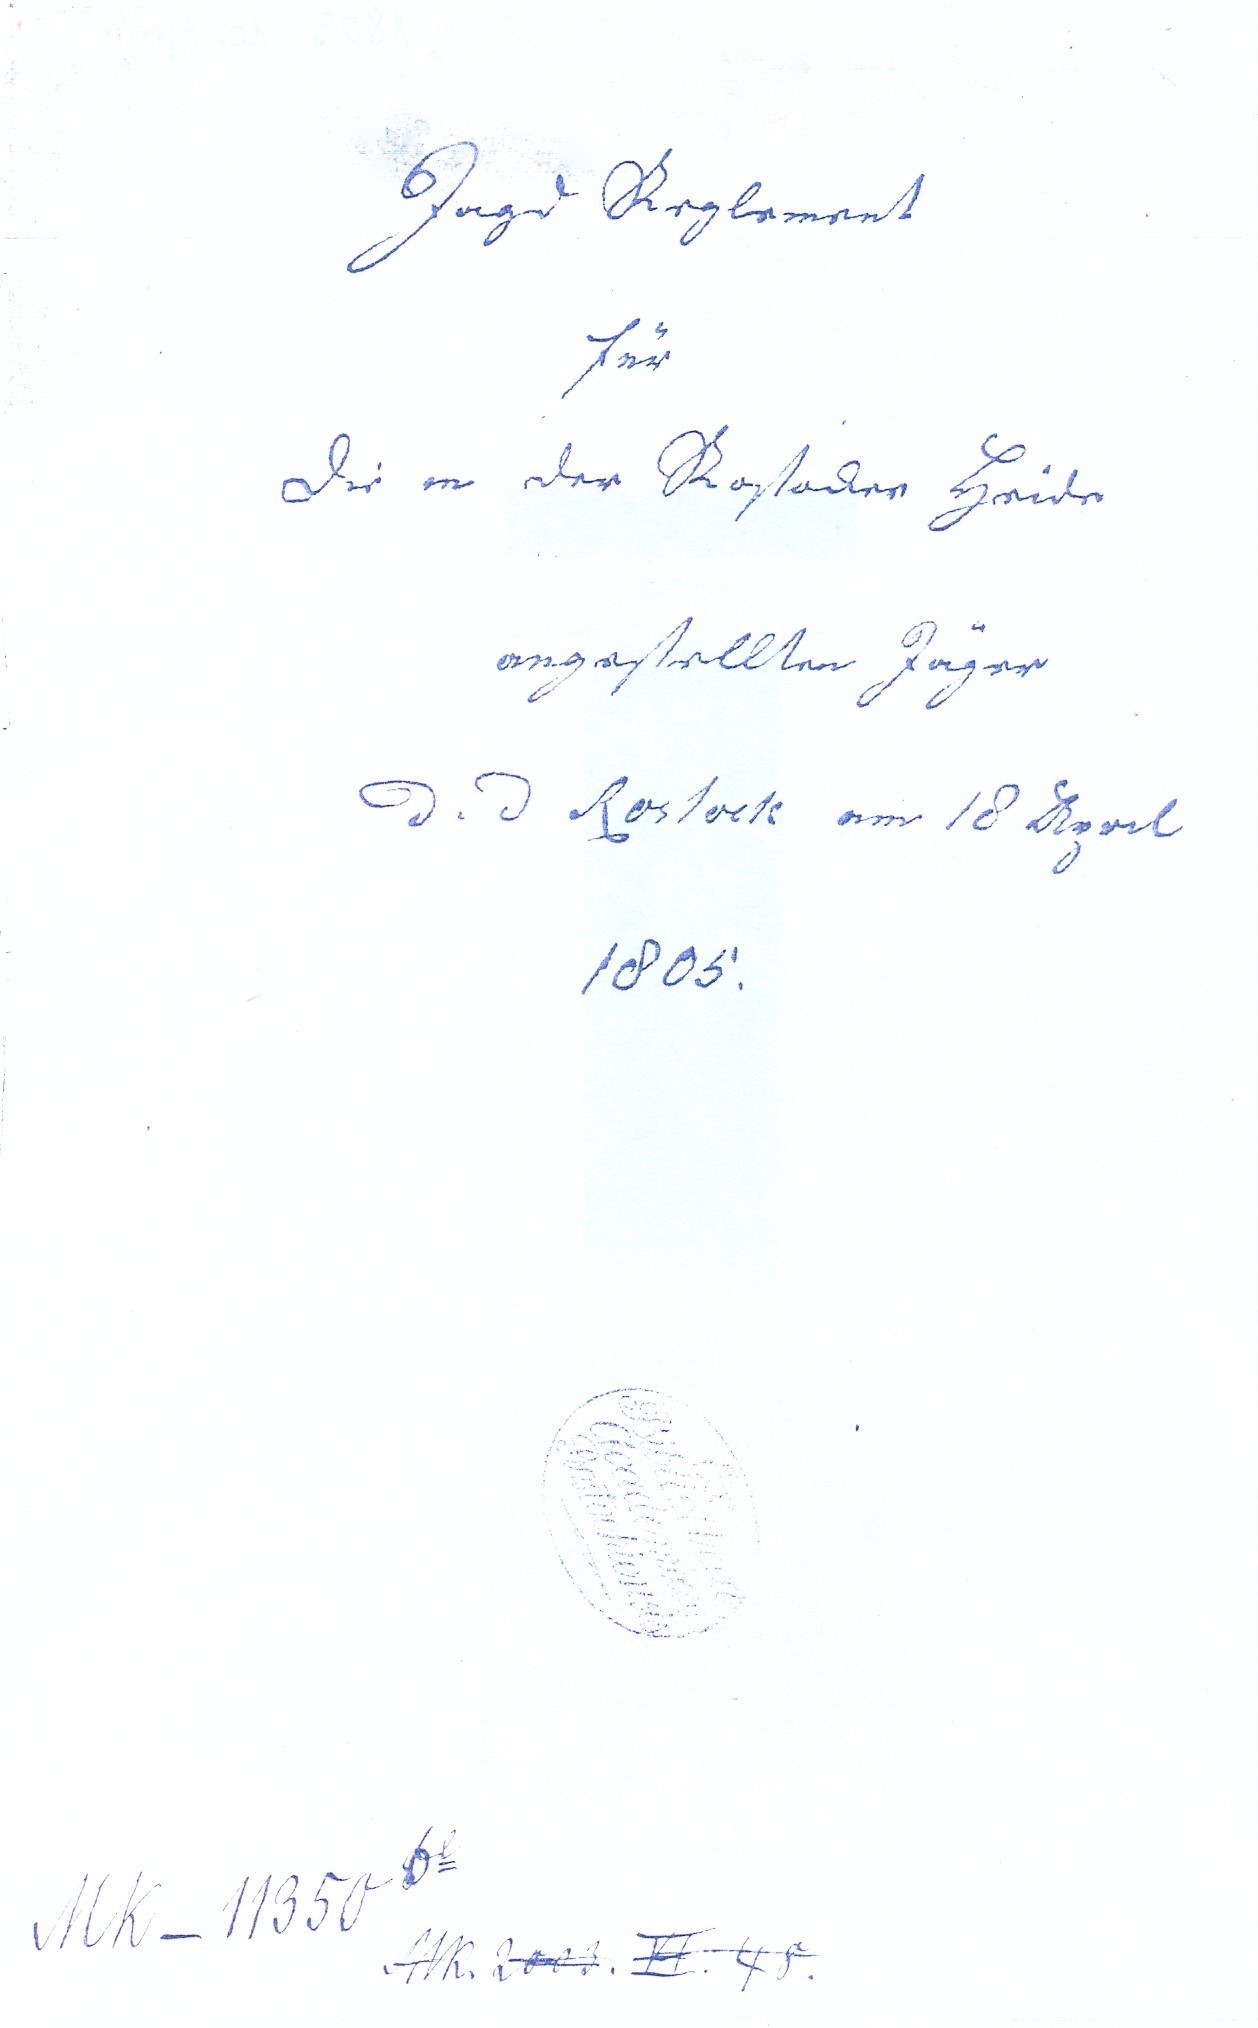 Jagd Reglement
für
die in der Rostocker Heide
angestellten Jäger
D. D Rostock am 18 April
1805.
MK–11350
MK. 2003. VI. 48.